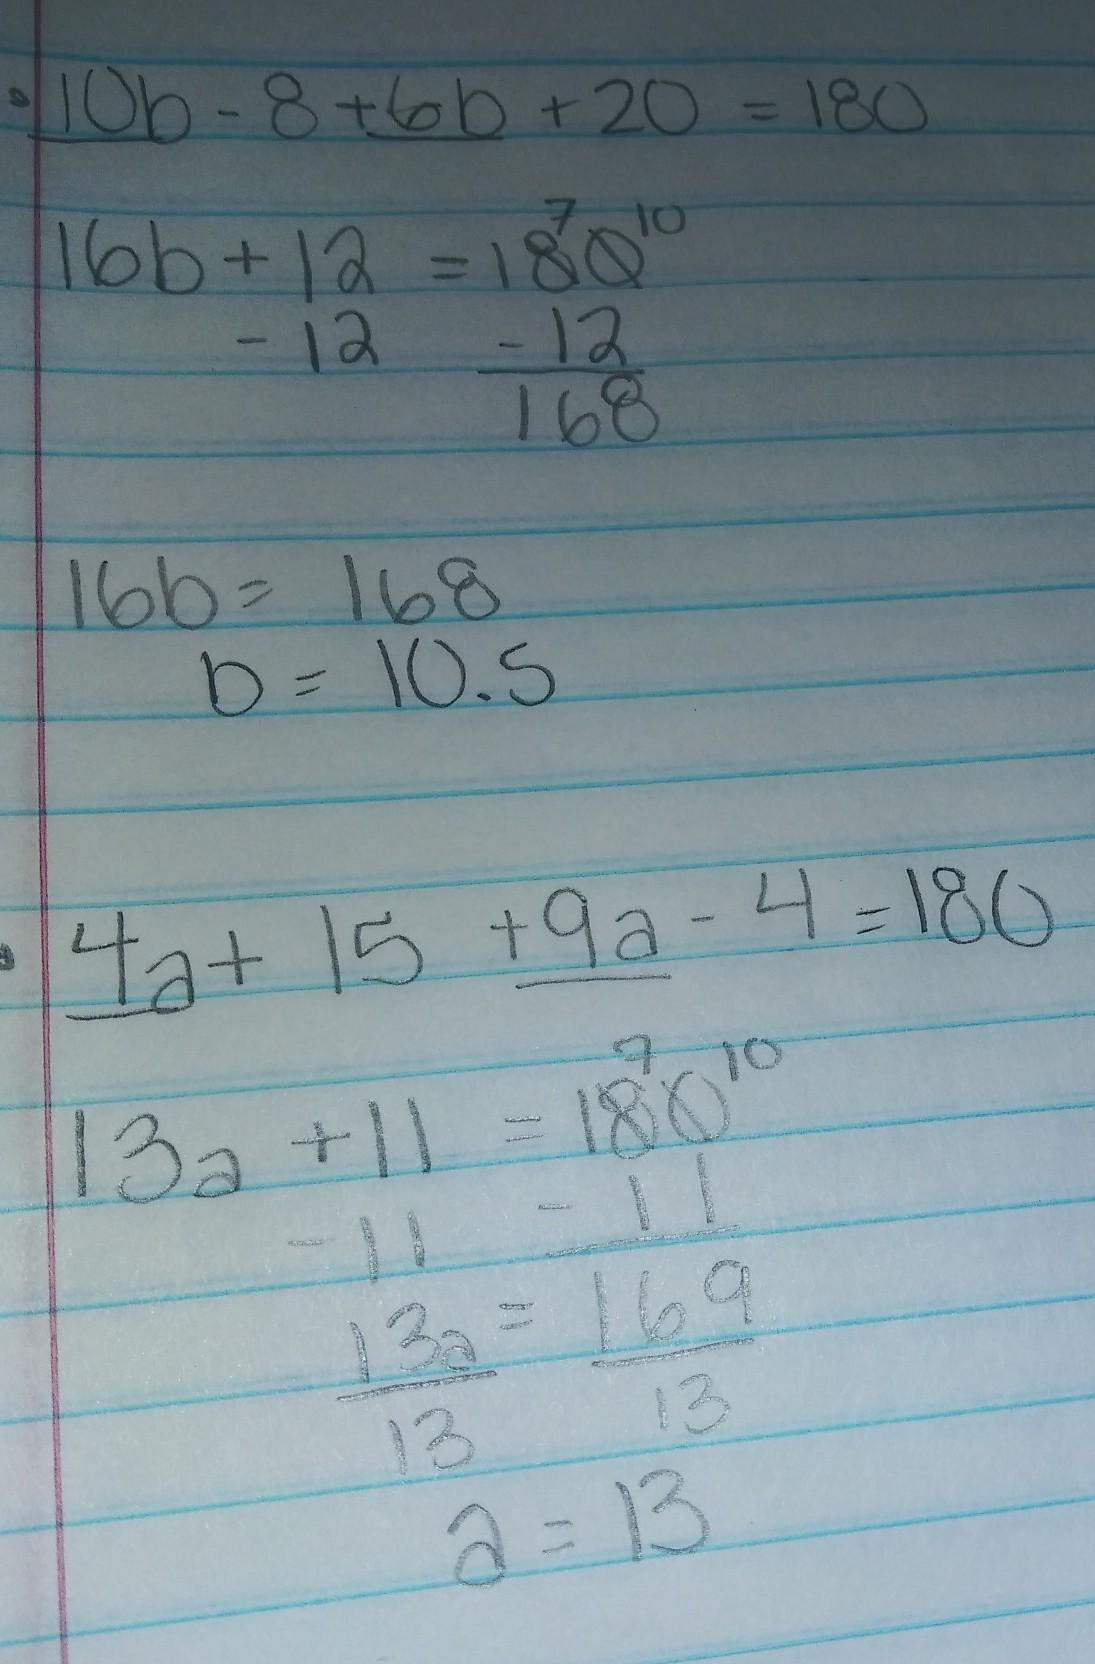 • 10b - 8 + 6b + 20 = 180
7 10
16b + 12 = 180
- 12 - 12
168
16b = 168
b = 10.5
• 4a + 15 + 9a - 4 = 180
7 10
13a + 11 = 180
- 11 - 11
13a = 169
13 13
a = 13